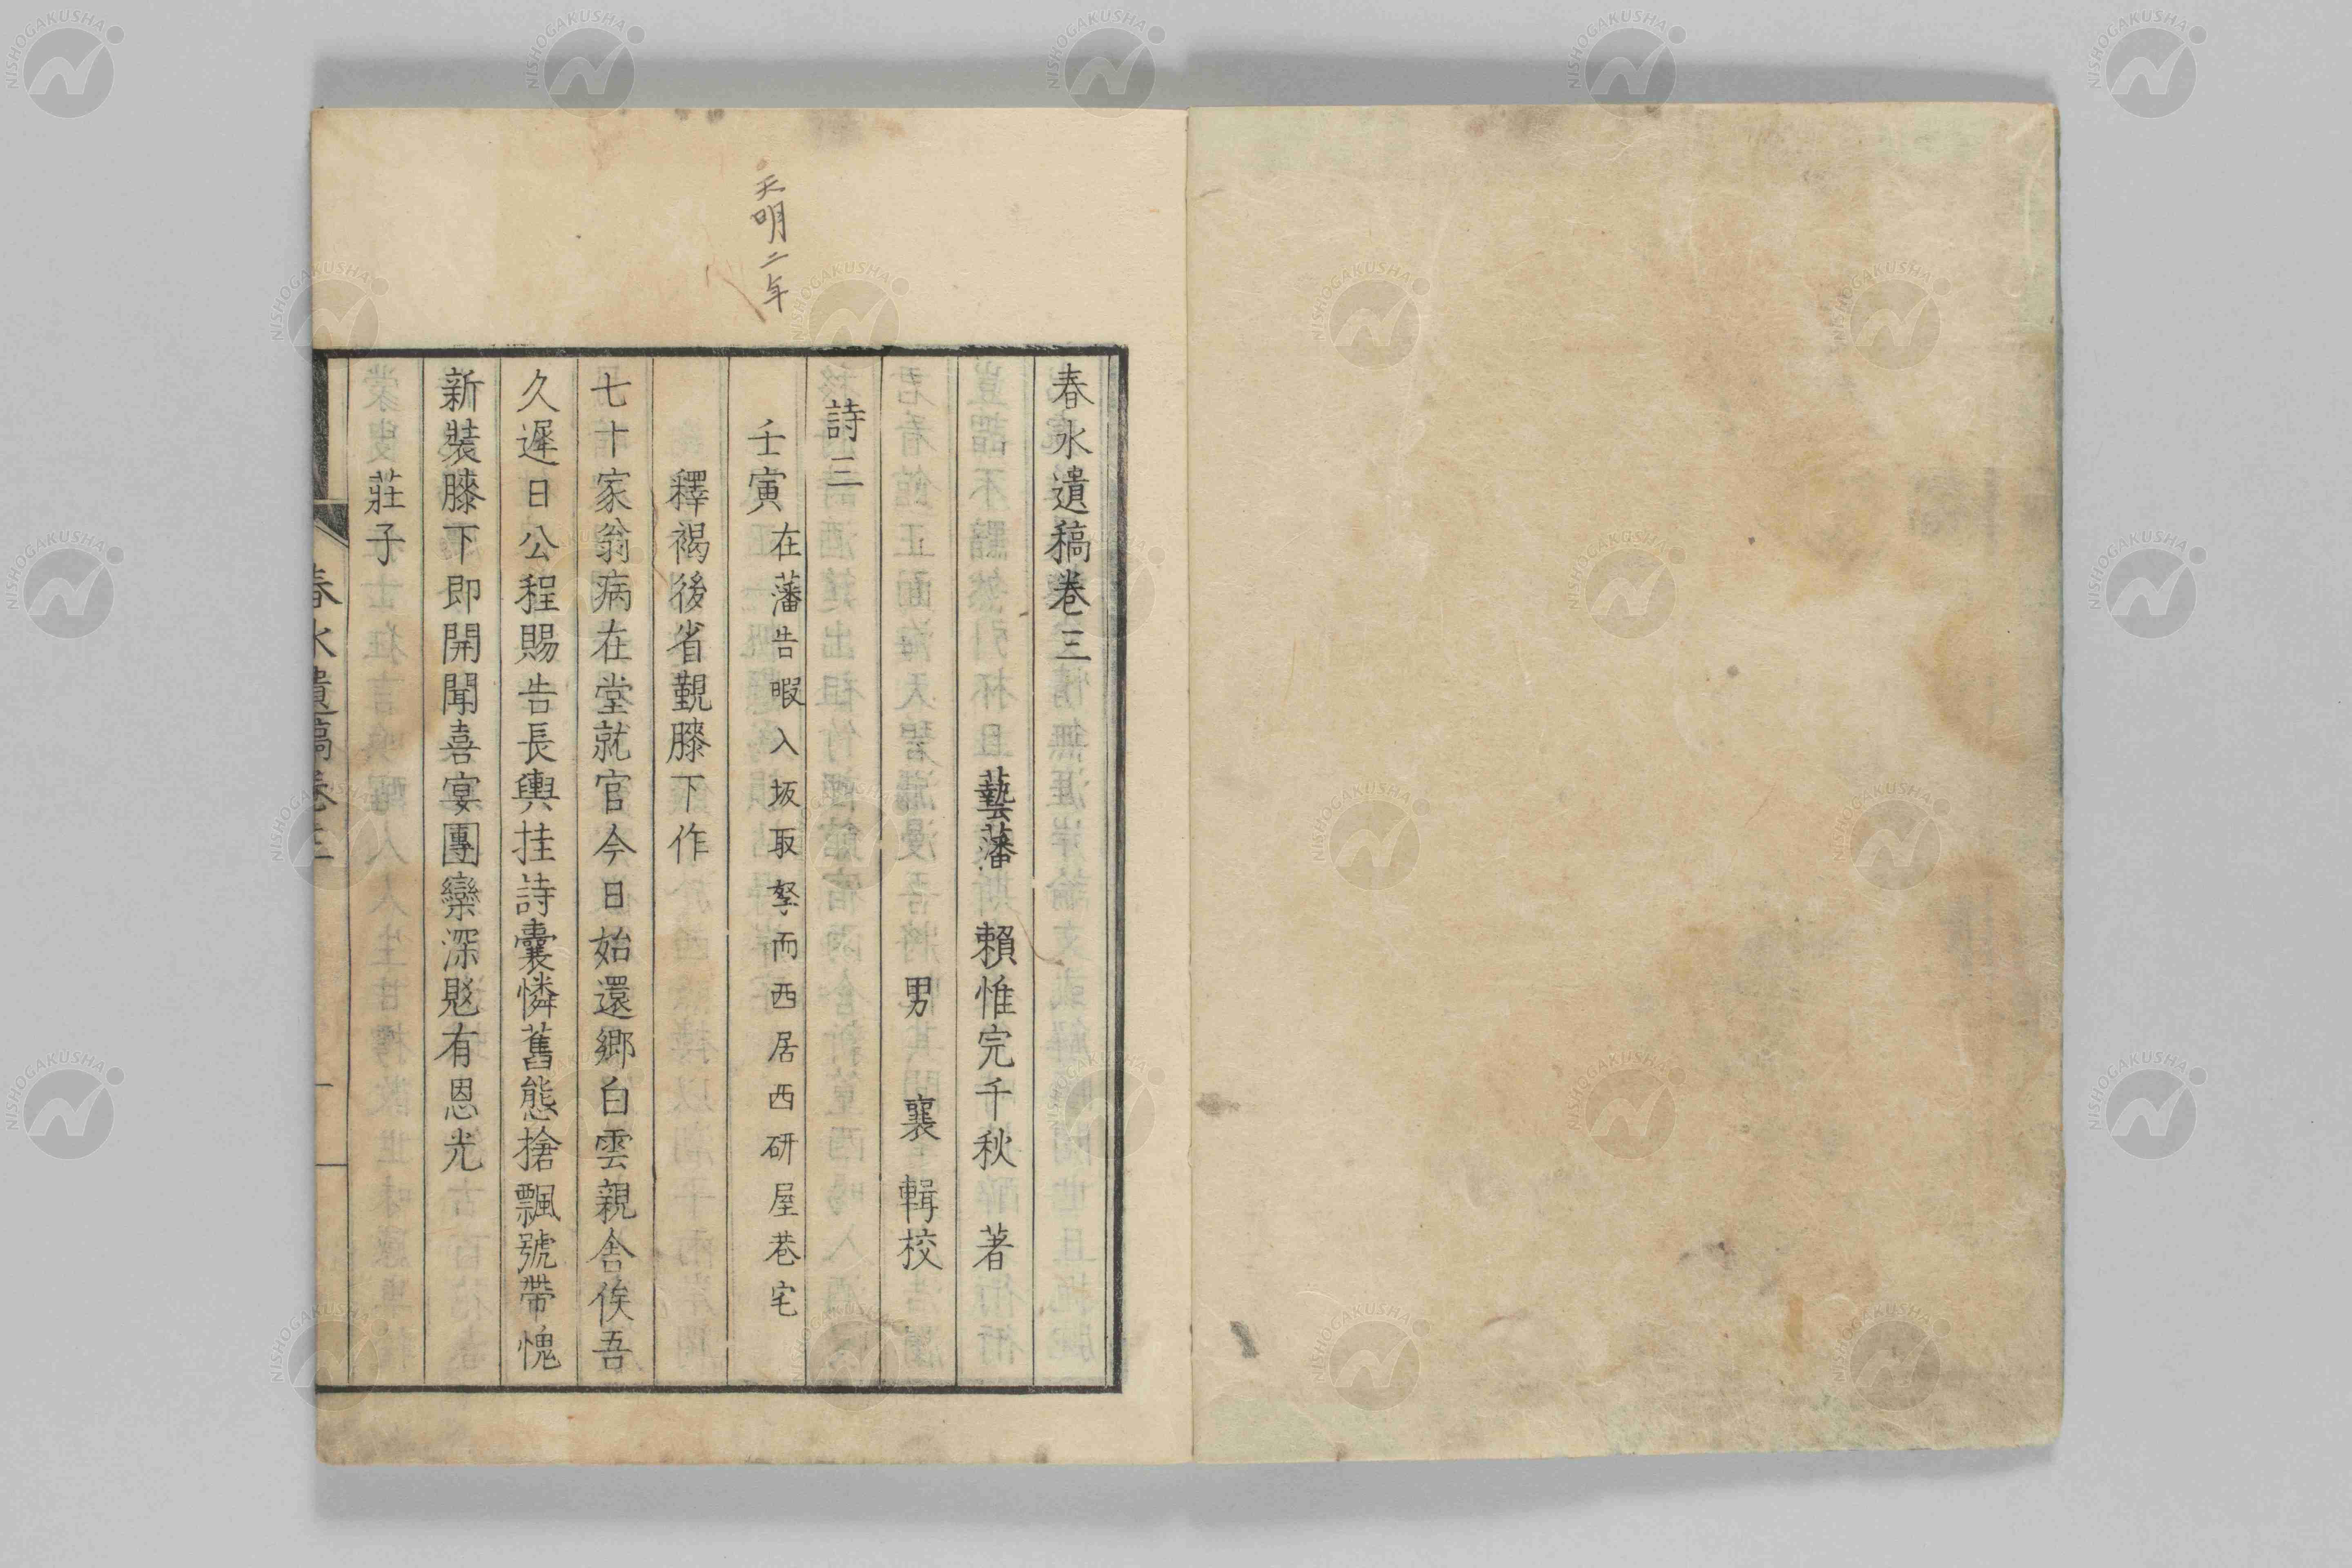 天明二年
春水遺稿卷三
藝藩 賴惟完千秋 著
男 襄 輯校
詩三
壬寅 在藩告暇入坂取孥而西居西研屋巷宅
釋褐後省覲膝下作
七十家翁病在堂就官今日始還鄉白雲親舍俟吾
久遲日公程賜告長輿挂詩囊憐舊態搶飄號帶愧
新裝膝下即開聞喜宴團欒深愍有恩光
莊子
春水遺稿卷三
一
NISHOGAKUSHA